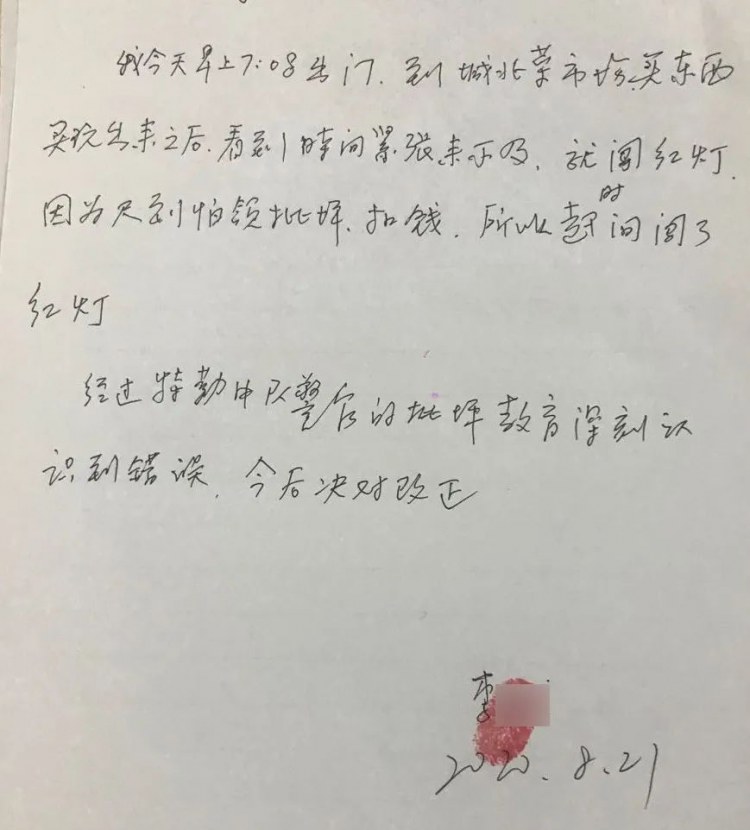 我今天早上7:08出门.到城北菜市场.买东西
买完出来之后.看到时间紧张来不及.就闯红灯.
因为尺到怕领批坪.扣钱.所以赶时间闯了
红灯
经过特勤中队警官的批坪教育深刻认
识到错误.今后决对改正
李
2020.8.21